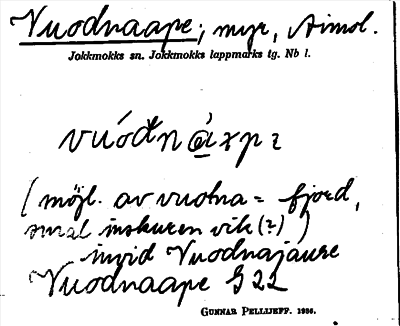 Vuodnaape; myr, Aimol.
Jokkmokks sn. Jokkmokks lappmarks tg. Nb l.
vuóđnạ̄xpɛ
(möjl. av vuotna = fjord,
smal inskuren vik (?))
invid Vuodnajaure
Vuodnaape G 22
GUNNAR PELLIJEFF. 1956.